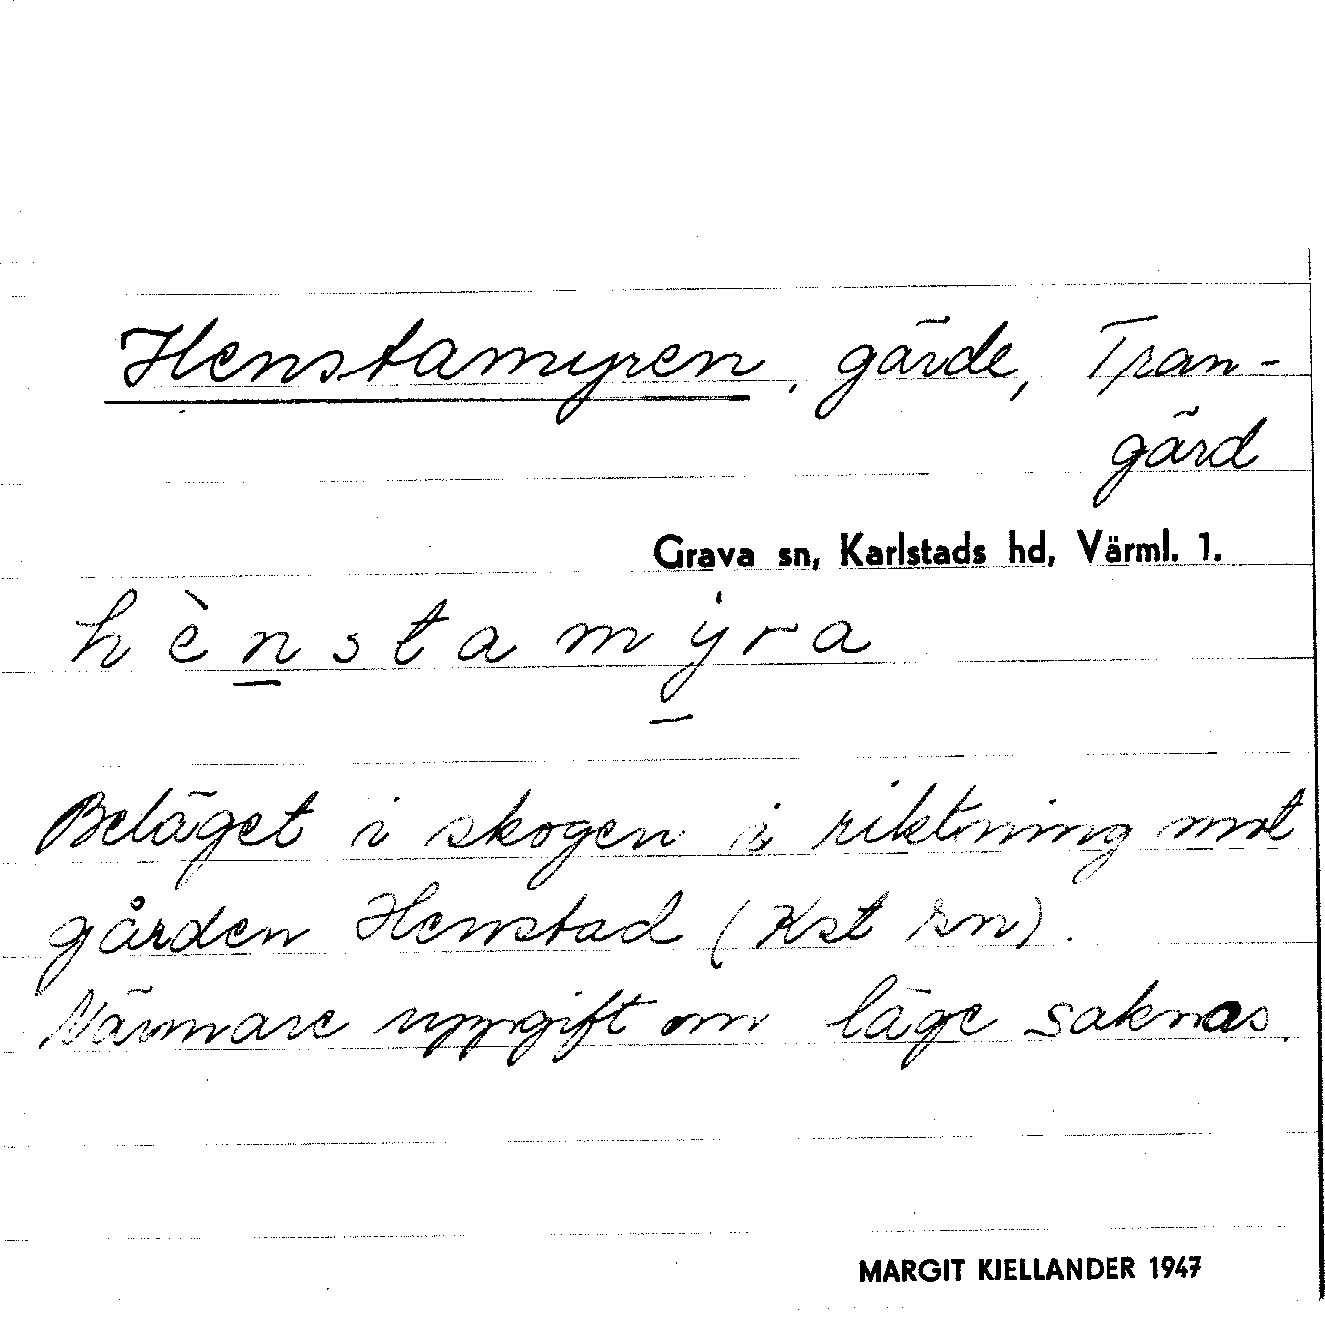 Henstamyren, gärde, Tran-
gärd
Grava sn, Karlstads hd, Värml. 1.
hènstamýra
Beläget i skogen i riktning mot
gården Henstad (Kst sn).
Närmare uppgift om läge saknas.
MARGIT KJELLANDER 1947